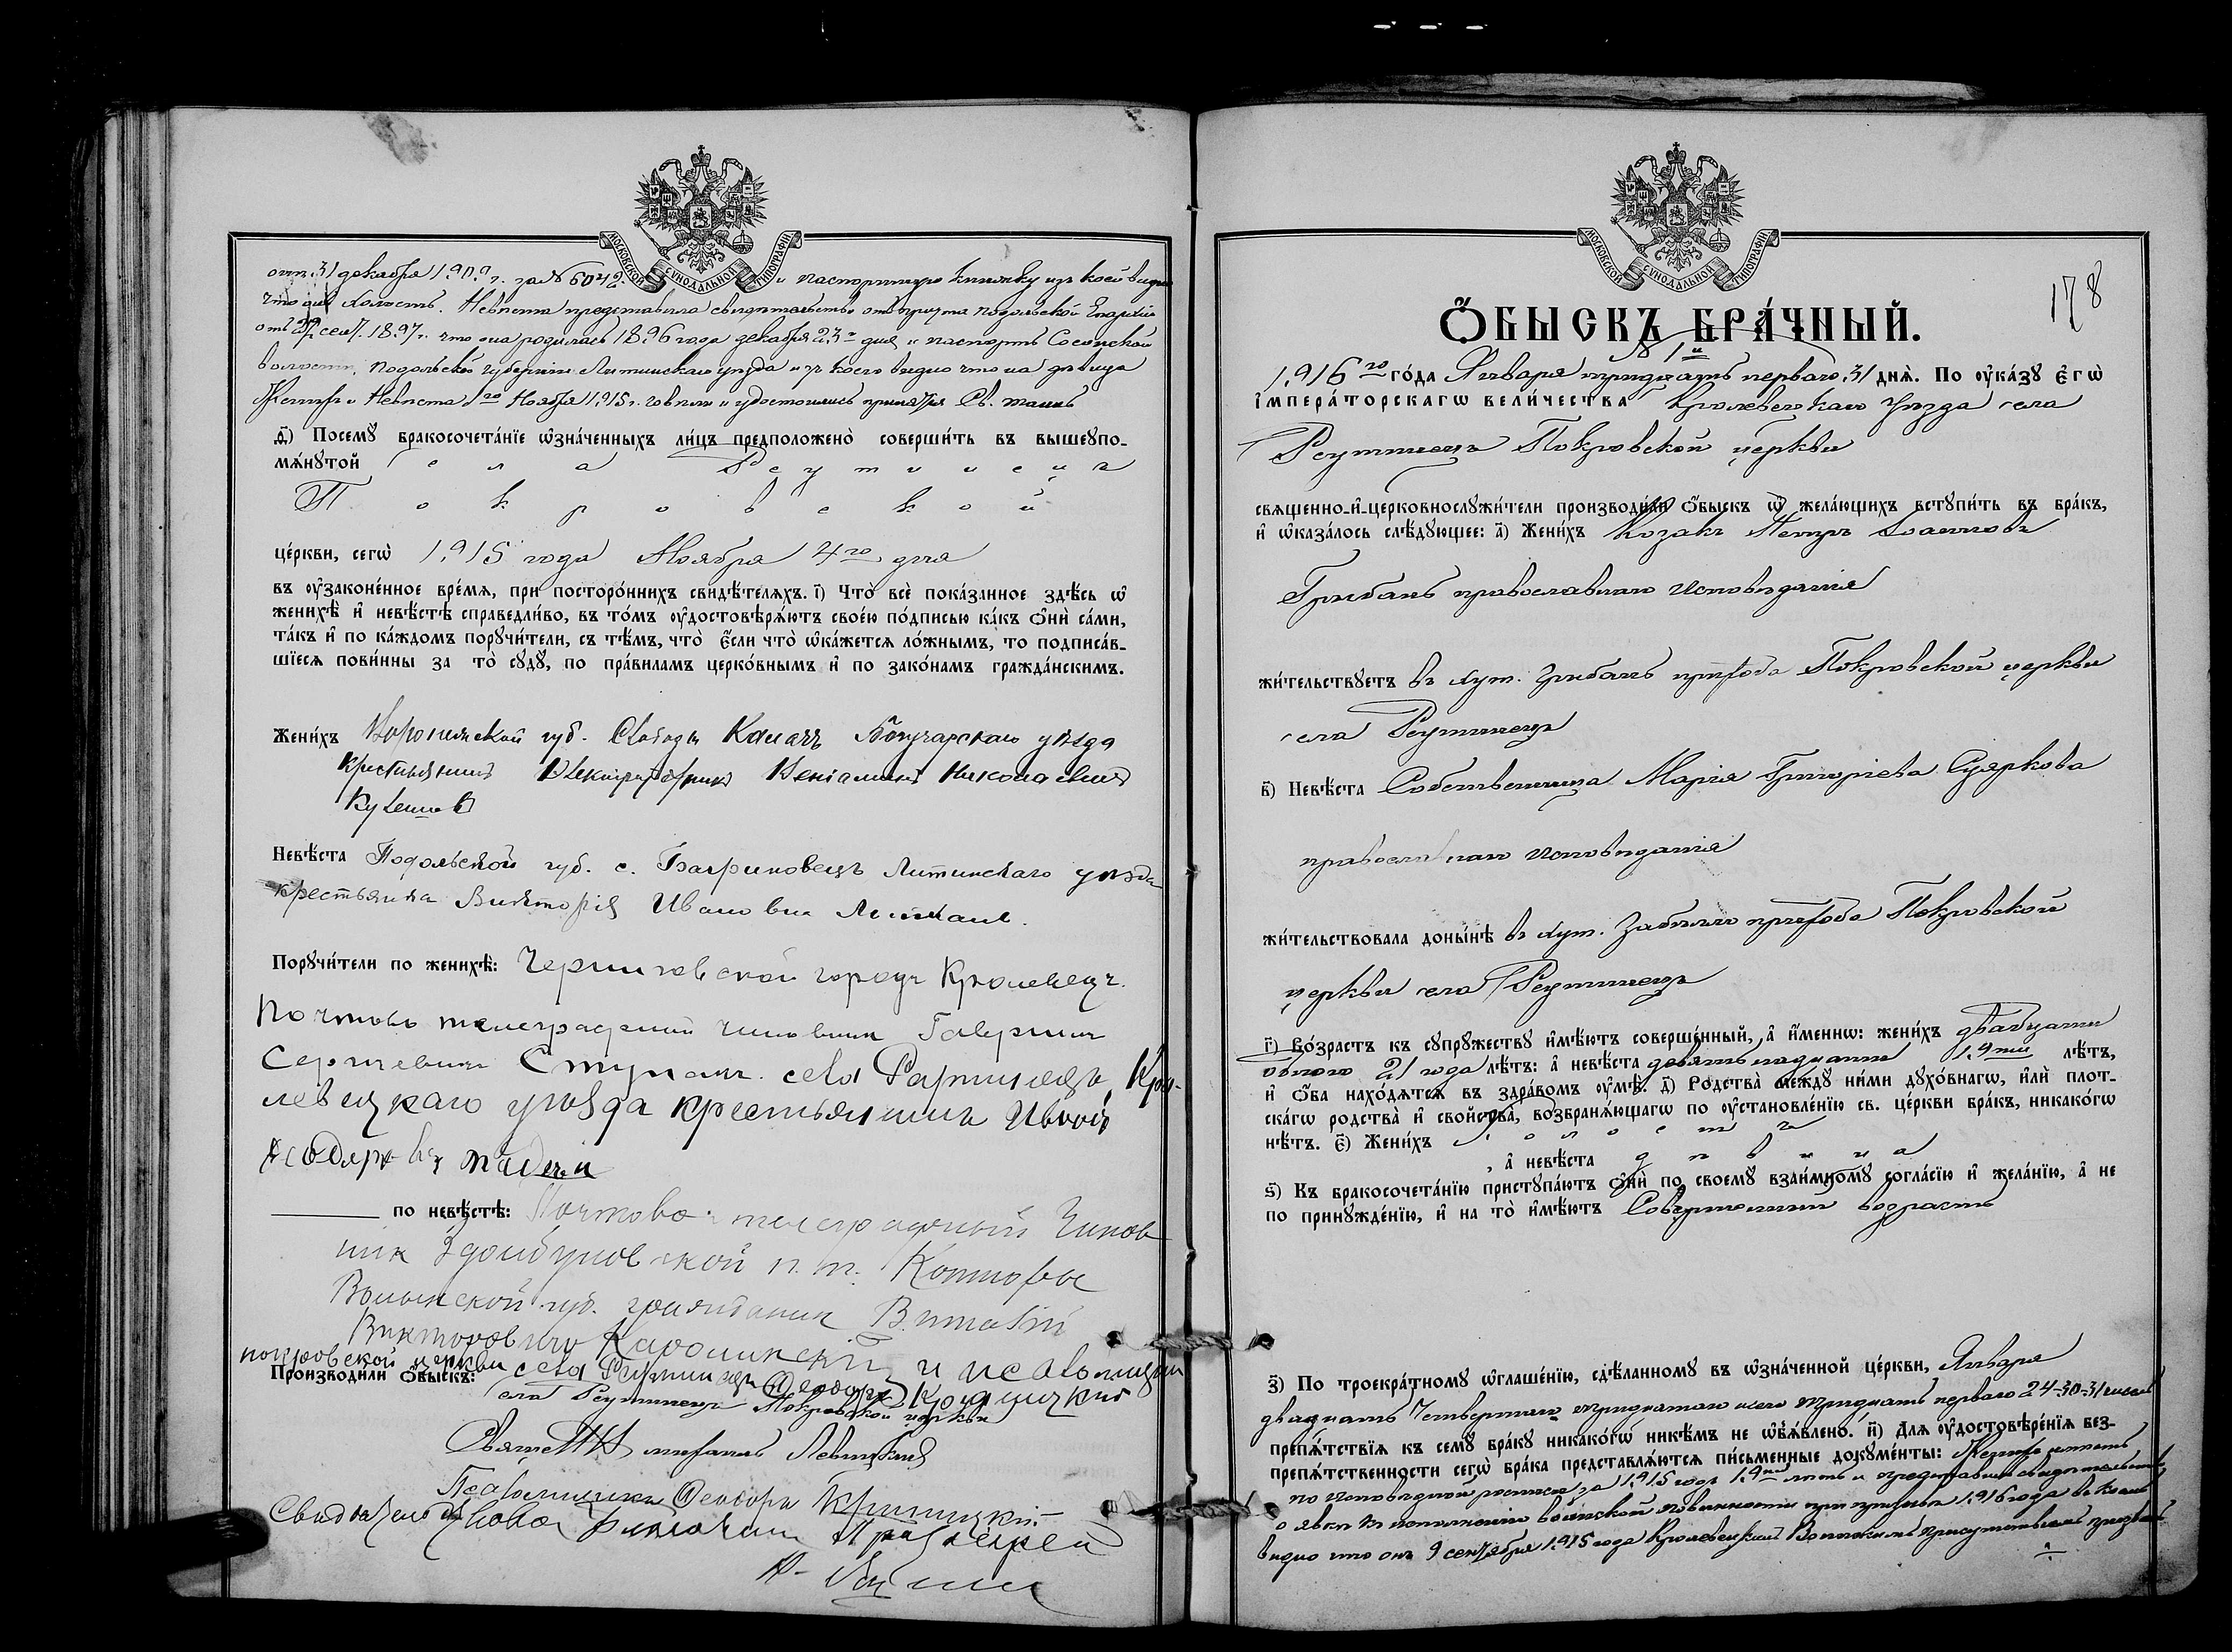 МОСКОВСКОЙ СУНОДАЛЬНОЙ ТИПОГРАФІИ
отъ 31 декабря 1909 г. за № 6042 и паспортную книжку изъ коей видно
что онъ холостъ. Невѣста представила свидѣтельство отъ причта Подольской Епархіи
отъ сент. 1897 г. что она родилась 1896 года декабря 23 дня и паспортъ
волости, Подольской губерніи Литинскаго уѣзда изъ коего видно что на дѣвица
Женихъ и Невѣста Ноября 1915 г. говѣли и удостоились принятія Св. таинъ
д҃і) Посемꙋ̀ бракосочета́нїе ѡ҆зна́ченныхъ ли́цъ предположено̀ соверши́ть въ вышеꙋпо-
мѧ́нꙋтой села Реутинецъ
Покровской
це́ркви, сегѡ̀ 1915 года Ноября 4го дня
въ ᲂу҆законе́нное вре́мѧ, при посторо́ннихъ свидѣ́телѧхъ. і҃) Что̀ всѐ пока́занное здѣ́сь ѡ҆
женихѣ̀ и҆ невѣ́стѣ справедли́во, въ то́мъ ᲂу҆достовѣрѧ́ютъ свое́ю по́дписью ка́къ ѻ҆нѝ са́ми,
та́къ и҆ по ка́ждомъ порꙋчи́тели, съ тѣ́мъ, что̀ є҆́сли что̀ ѡ҆ка́жетсѧ ло́жнымъ, то подписа́в-
шїесѧ пови́нны за то̀ сꙋдꙋ̀, по пра́виламъ церко́внымъ и҆ по зако́намъ гражда́нскимъ.
Жени́хъ Воронежской губ. Слободы Калачъ Богучарскаго уѣзда
крестьянинъ Веніаминъ Николаевичъ
Кулешов
Невѣ́ста Подольской губ. с. Багриновецъ Литинскаго уѣзда
крестьянка Викторія Ивановна
Порꙋчи́тели по женихѣ̀: Черниговской городъ Кролевецъ.
Почтово телеграфный чиновник
Сергѣевичъ Ступакъ. села Рѣутинецъ, Кро-
левецкаго уѣзда крестьянинъ Иванъ
по невѣ́стѣ: Почтово-телеграфный Чинов
ник Здолбуновской п. т. Конторы
Волынской губ. гражданин Виталій
Викторовичъ и псаломщик
покровской церкви села Реутинецъ Ѳеодоръ Криницкій
Производи́ли ѻ҆́быскъ: села Реутинецъ Покровской церкви
Священникъ Левицкій
Псаломщикъ Ѳеодоръ Криницкій
МОСКОВСКОЙ СУНОДАЛЬНОЙ ТИПОГРАФІИ
178
Ѻ҆́БЫСКЪ БРА́ЧНЫЙ.
№ 1й
1916го го́да Января тридцать перваго 31 днѧ̀. По ᲂу҆ка́зꙋ Є҆гѡ̀
І҆мпера́торскагѡ вели́чества Кролевецкаго Уѣзда села
Реутинецъ Покровской церкви
свѧщенно-и҆-церковнослꙋжи́тели производи́ли ѻ҆́быскъ ѡ҆ жела́ющихъ встꙋпи́ть въ бра́къ,
и҆ ѡ҆каза́лось слѣ́дꙋющее: а҃) Жени́хъ Козакъ Петръ Іоанновъ
Грибанъ православнаго исповѣданія
жи́тельствꙋетъ въ хут. Грибанъ прихода Покровской церкви
села Реутинецъ
в҃) Невѣ́ста Собственница Марія Григоріева Суяркова
православнаго исповѣданія
жи́тельствовала доны́нѣ въ хут. прихода Покровской
церкви села Реутинецъ
г҃) Во́зрастъ къ сꙋпрꙋ́жествꙋ и҆мѣ́ютъ соверше́нный, а҆ и҆́меннѡ: жени́хъ двадцати
одного 21 года лѣ́тъ: а҆ невѣ́ста девятнадцати 19ти лѣ́тъ,
и҆ ѻ҆́ба нахо́дѧтсѧ въ здра́вомъ ᲂу҆мѣ̀. д҃) Родства̀ междꙋ̀ ни́ми дꙋхо́внагѡ, и҆лѝ плот-
ска́гѡ родства̀ и҆ свойства̀, возбранѧ́ющагѡ по ᲂу҆становле́нїю св. це́ркви бра́къ, никако́гѡ
нѣ́тъ. є҃) Жени́хъ холостъ
, а҆ невѣ́ста дѣвица
ѕ҃) Къ бракосочета́нїю пристꙋпа́ютъ ѻ҆нѝ по своемꙋ̀ взаи́мномꙋ согла́сїю и҆ жела́нїю, а҆ не
по принꙋжде́нїю, и҆ на то̀ и҆мѣ́ютъ Совершенный возрастъ
з҃) По троекра́тномꙋ ѡ҆глаше́нїю, сдѣ́ланномꙋ въ ѡ҆зна́ченной це́ркви, Января
двадцать Четвертаго тридцатаго и тридцать перваго 24-30-31 чиселъ
препѧ́тствїѧ къ семꙋ̀ бра́кꙋ никако́гѡ никѣ́мъ не ѡ҆б̾ѧ́влено. и҃) Длѧ̀ ᲂу҆достовѣре́нїѧ без-
препѧ́тственности сегѡ̀ бра́ка представлѧ́ютсѧ пи́сьменные докꙋме́нты: Женихъ имѣетъ
по исповѣдной росписи за 1915 годъ лѣтъ и представилъ свидѣтельство
о явкѣ къ исполненію воинской повинности при призывѣ 1916 года въ коемъ
видно что онъ 9 сентября 1915 года Кролевецкимъ Воинскимъ присутствіемъ